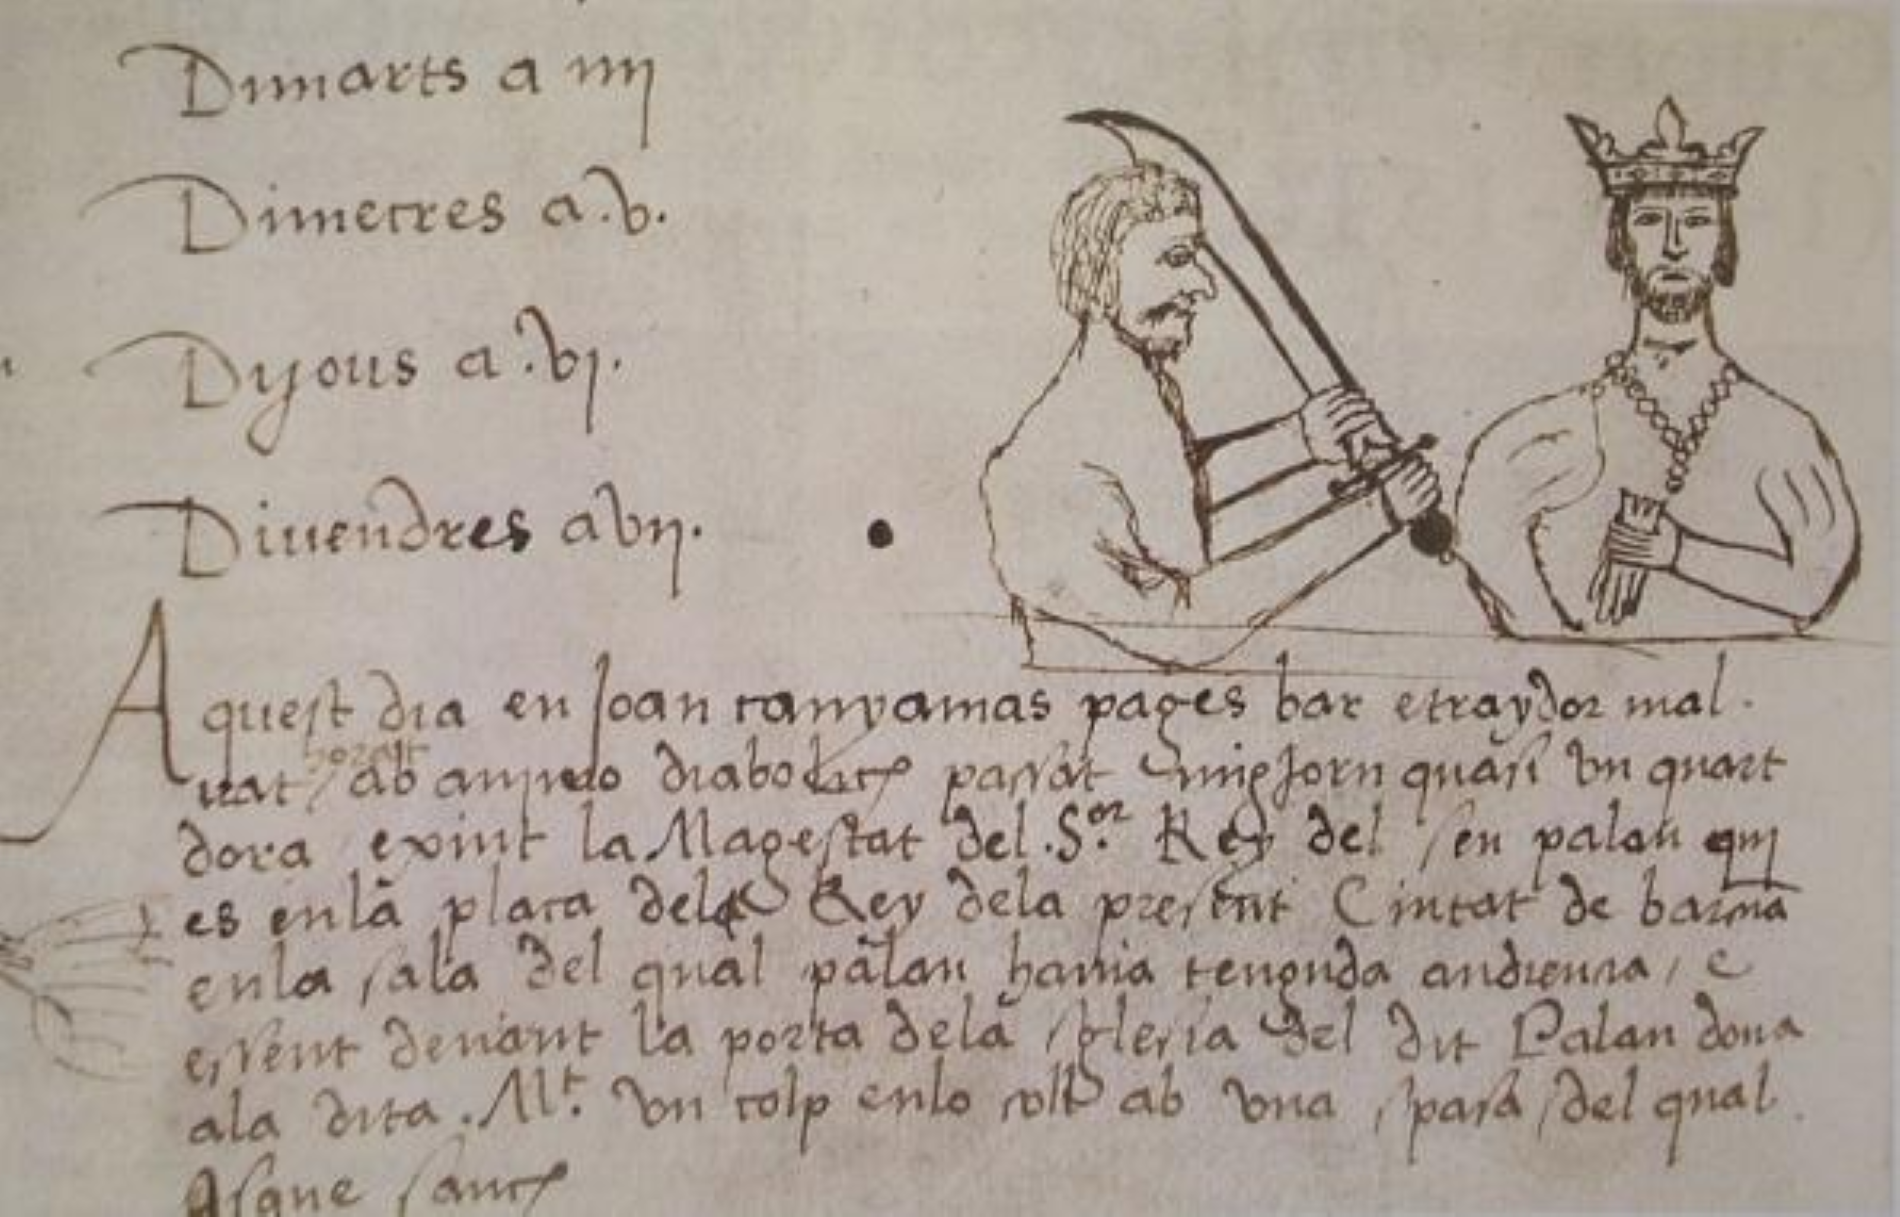 Dimarts a iiij
Dimecres a .v.
Dijous a .vj.
Divendres a vij.
Aquest dia en Joan canyamas pages bar e traydor mal
vat horant ab animo diabolich passat mig jorn quasi vn quart
dora exint la Magestat del .S.or Rey del seu palau qui
es en la plaça del Rey dela present Ciutat de barna
en la sala del qual palau hauia tenguda audiencia, e
essent deuant la porta dela sglesia del dit Palau dona
ala dita .Mt. vn colp en lo coll ab vna spasa, del qual
isque sanch